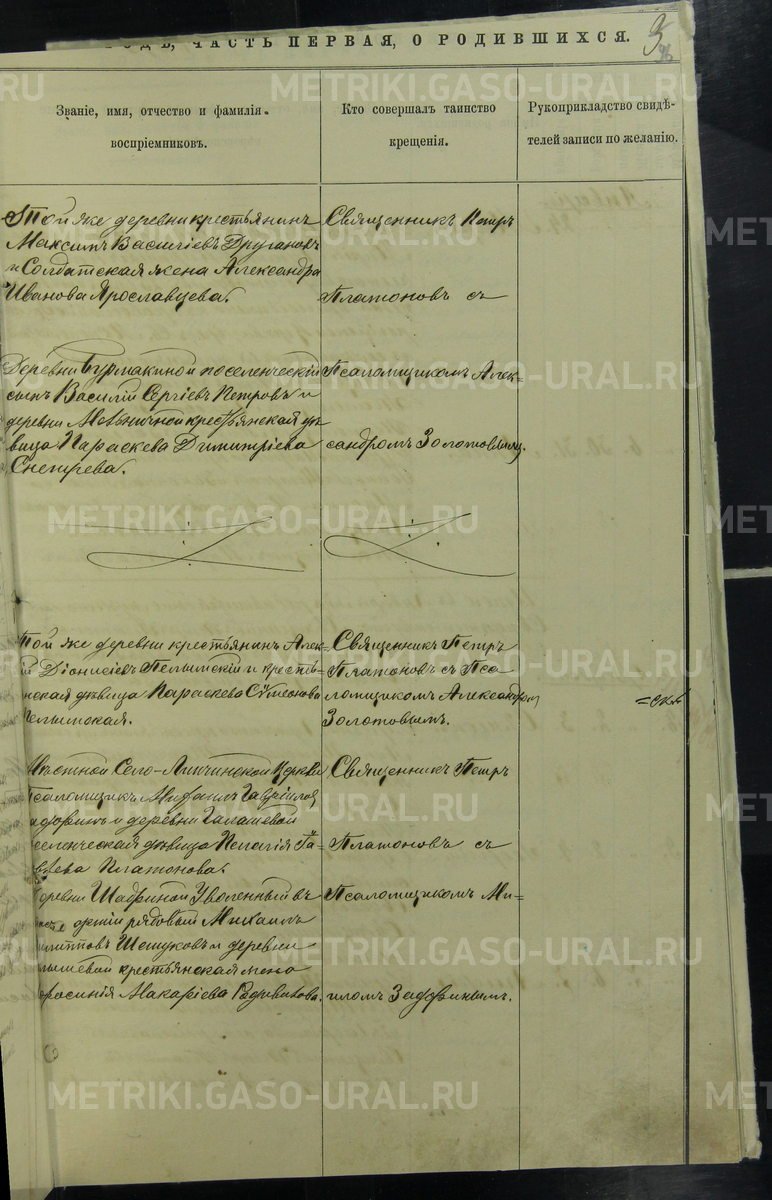 ЧАСТЬ ПЕРВАЯ, О РОДИВШИХСЯ.
Званіе, имя, отчество и фамилія
воспріемниковъ.
Кто совершалъ таинство
крещенія.
Рукоприкладство свидѣ-
телей записи по желанію.
Той же деревни крестьянинъ
Максимъ Василіевъ Другановъ
и Солдатская жена Александра
Иванова Ярославцева.
Священникъ Петръ
Платоновъ съ
Деревни Бурмакиной поселенческій
сынъ Василій Сергіевъ Петровъ и
деревни Мельничной крестьянская дѣ-
вица Параскева Димитріева
Снегирева.
Псаломщикомъ Алек-
сандромъ Золотовымъ.
Той же деревни крестьянинъ Алек-
й Діонисіевъ Пелымскій и кресть-
нская дѣвица Параскева Сѵмеонова
елымская.
Священникъ Петръ
Платоновъ съ Пса-
ломщикомъ Александром
Золотовымъ.
мѣстной Село-Липчинской Церкви
псаломщикъ Михаилъ Гавріиловъ
и деревни
селенческая дѣвица Пелагія Га-
Платонова.
Священникъ Петръ
Платоновъ съ
деревни Шадриной Уволенный въ
рядовый Михаилъ
Шешуковъ и деревни
крестьянская жена
Макаріева
Псаломщикомъ Ми-
хаиломъ
METRIKI.GASO-URAL.RU